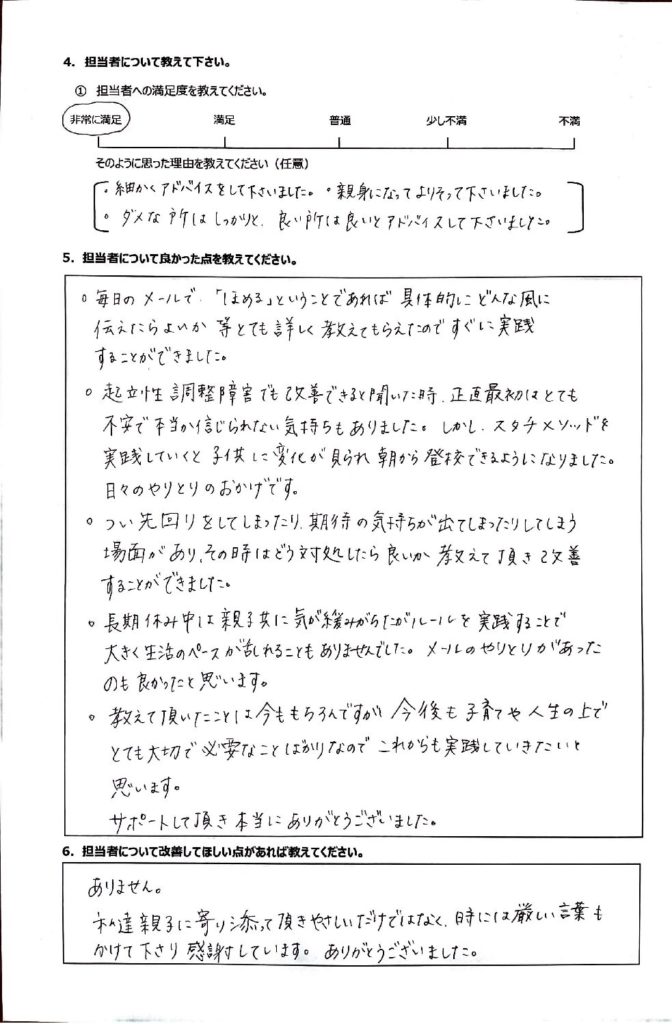 4. 担当者について教えて下さい。
① 担当者への満足度を教えてください。
非常に満足 満足 普通 少し不満 不満
そのように思った理由を教えてください（任意）
・細かくアドバイスをして下さいました。・親身になってよりそって下さいました。
・ダメな所はしっかりと、良い所は良いとアドバイスして下さいました。
5. 担当者について良かった点を教えてください。
○ 毎日のメールで、「ほめる」ということであれば 具体的に どんな風に
伝えたらよいか 等とても詳しく 教えてもらえたので すぐに実践
することができました。
○ 起立性調整障害でも改善できると聞いた時、正直最初はとても
不安で本当か信じられない気持ちもありました。しかし、スタチメソッドを
実践していくと 子供に変化が見られ 朝から登校できるようになりました。
日々のやりとりのおかげです。
○ つい先回りをしてしまったり、期待の気持ちが出てしまったりしてしまう
場面があり、その時はどう対処したら良いか 教えて頂き改善
することができました。
○ 長期休み中は親子共に気が緩みがちだがルールを実践することで
大きく生活のペースが乱れることもありませんでした。メールのやりとりがあった
のも良かったと思います。
○ 教えて頂いたことは今ももちろんですが 今後も子育てや人生の上で
とても大切で必要なことばかりなので これからも実践していきたいと
思います。
サポートして頂き本当にありがとうございました。
6. 担当者について改善してほしい点があれば教えてください。
ありません。
私達親子に寄り添って頂きやさしいだけではなく、時には厳しい言葉も
かけて下さり 感謝しています。ありがとうございました。